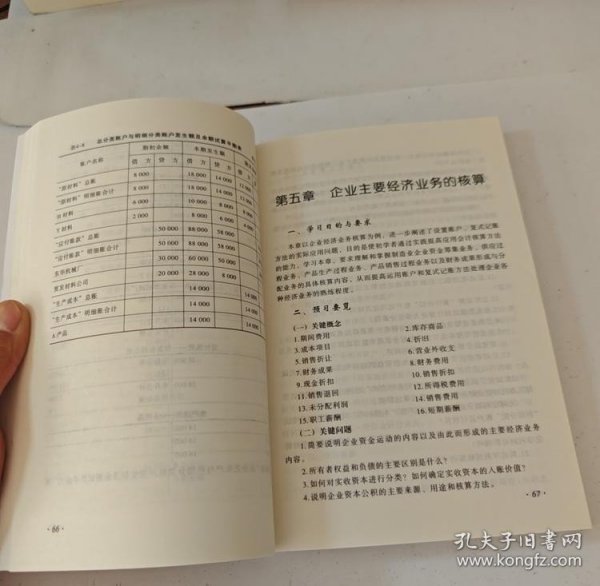 表4-8 总分类账户与明细分类账户发生额及余额试算平衡表
账户名称 期初余额 本期发生额
借方 贷方 借方 贷方
"原材料"总账 8 000 18 000 14 000
"原材料"明细账合计 8 000 18 000 14 000
6 000 10 000
Y材料 2 000 8 000
"应付账款"总账 50 000 88 000
"应付账款"明细账合计 50 000 88 000
30 000 60 000
20 000 28 000 8 000
"生产成本"总账 14 000
"生产成本"明细账合计 14 000
A产品 14 000
· 66 ·
第五章 企业主要经济业务的核算
一、学习目的与要求
本章以企业经济业务核算为例，进一步阐述了设置账户、复式记账
方法的实际应用问题，目的是使初学者通过实践提高应用会计核算方法
的能力。学习本章，要求理解和掌握制造业企业资金筹集业务、供应过
程业务、产品生产过程业务、产品销售过程业务以及财务成果形成与分
配业务的具体核算内容，从而提高运用账户和复式记账方法处理企业各
种经济业务的熟练程度。
二、预习要览
（一）关键概念
1.期间费用 2.库存商品
3.成本项目 4.折旧
5.销售折让 6.营业外收支
7.财务成果 8.财务费用
9.现金折扣 10.销售折扣
11.销售退回 12.所得税费用
13.未分配利润 14.销售费用
15.职工薪酬 16.短期薪酬
（二）关键问题
1.简要说明企业资金运动的内容以及由此而形成的主要经济业务
内容。
2.所有者权益和负债的主要区别是什么？
3.如何对实收资本进行分类？如何确定实收资本的入账价值？
4.说明企业资本公积的主要来源、用途和核算方法。
· 67 ·
孔夫子旧书网
www.kongfz.com